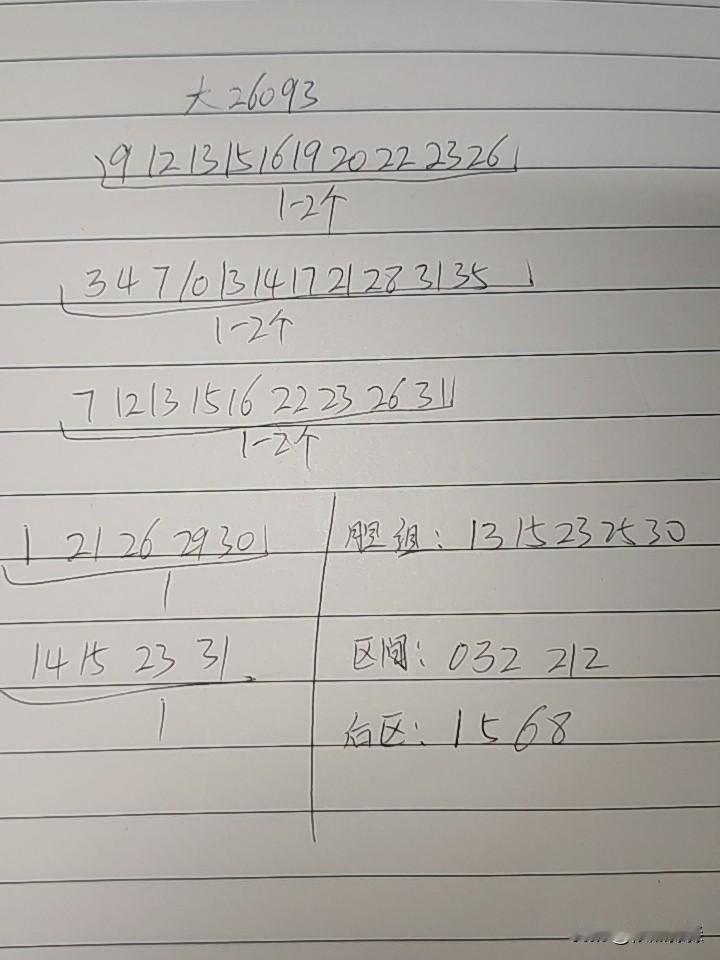 大26093
9 12 13 15 16 19 20 22 23 26
1-2个
3 4 7 10 13 14 17 21 28 31 35
1-2个
7 12 13 15 16 22 23 26 31
1-2个
1 21 26 29 30
1
14 15 23 31
1
胆组：13 15 23 25 30
区间：032 212
后区：1 5 6 8